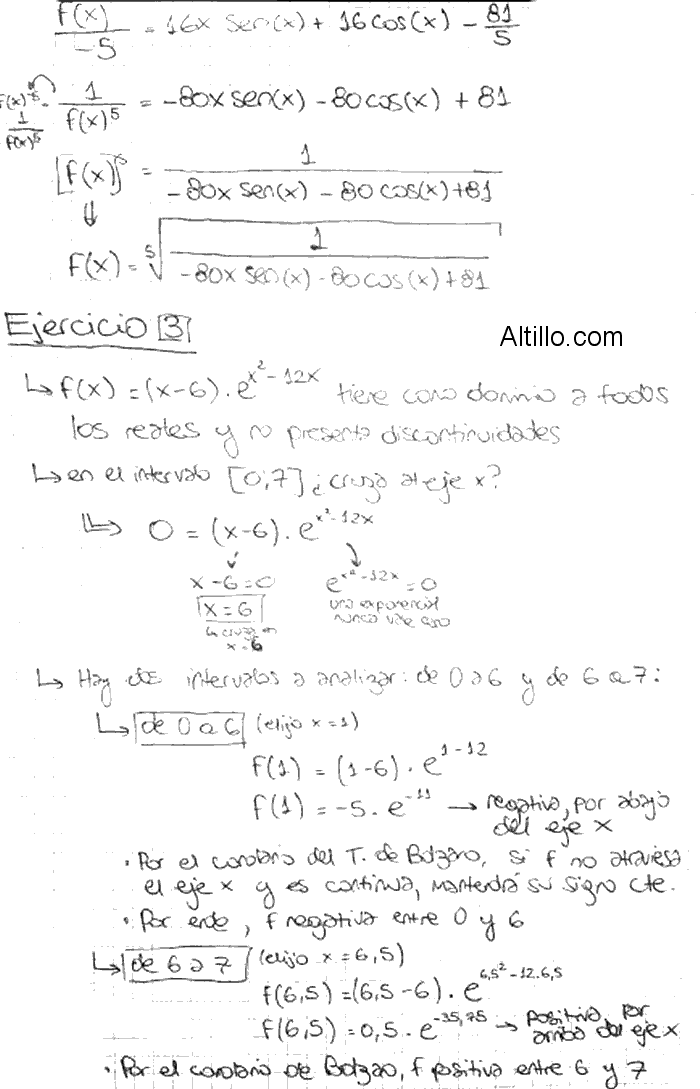 f(x)/-5 = 16x sen(x) + 16cos(x) - 81/5
f(x)^-5 = 1/f(x)^5
1/f(x)^5 = -80x sen(x) - 80cos(x) + 81
[f(x)]^5 = 1/(-80x sen(x) - 80cos(x)+81)
⇓
f(x) = ⁵√(1/(-80x sen(x) - 80cos(x)+81))
Ejercicio 3
Altillo.com
↳ f(x) = (x-6) . e^(x²-12x) tiene como dominio a todos
los reales y no presenta discontinuidades
↳ en el intervalo [0;7] ¿cruza al eje x?
↳ 0 = (x-6) . e^(x²-12x)
x-6=0 e^(x²-12x)=0
x=6 una exponencial
nunca vale cero
↳ cruza en
x=6
↳ Hay dos intervalos a analizar: de 0 a 6 y de 6 a 7:
↳ de 0 a 6 (elijo x=1)
f(1) = (1-6) . e^(1-12)
f(1) = -5 . e^(-11) → negativa, por abajo
del eje x
• Por el corolario del T. de Bolzano, si f no atraviesa
el eje x y es continua, mantendrá su signo cte.
• Por ende, f negativa entre 0 y 6
↳ de 6 a 7 (elijo x=6,5)
f(6,5) = (6,5-6) . e^(6,5²-12.6,5)
f(6,5) = 0,5 . e^(-35,75) → positiva, por
arriba del eje x
• Por el corolario de Bolzano, f positiva entre 6 y 7